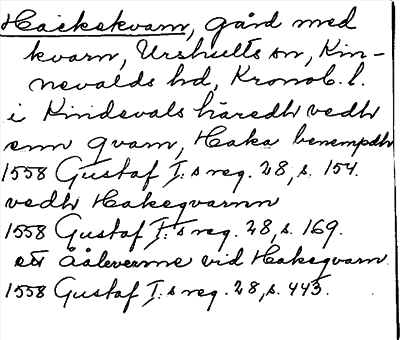 Hackekvarn, gård med
kvarn, Urshults sn, Kin-
nevalds hd, Kronob. l.
i Kindevals häredh vedh
enn qvarn, Haka benempdh
1558 Gustaf I:s reg. 28, s. 154.
vedh Hakeqvarnn
1558 Gustaf I:s reg. 28, s. 169.
ett Åålevernne vid Hakeqvarn.
1558 Gustaf I:s reg. 28, s. 443.